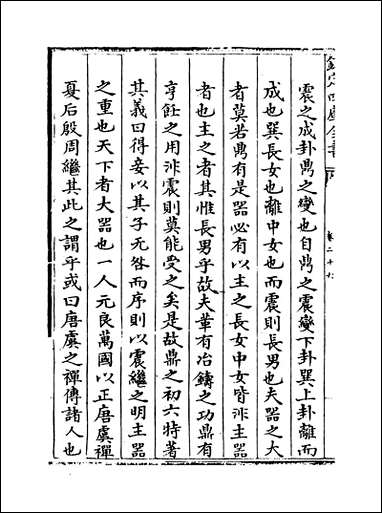 欽定四庫全書
卷二十六
震之成卦鼎之變也自鼎之震變下卦巽上卦離而
成也巽長女也離中女也而震則長男也夫器之大
者莫若鼎有是器必有以主之長女中女皆非主器
者也主之者其惟長男乎故夫革有冶鑄之功鼎有
亨飪之用非震則莫能受之矣是故鼎之初六特著
其義曰得妾以其子无咎而序則以震繼之明主器
之重也天下者大器也一人元良萬國以正唐虞禪
夏后殷周繼其此之謂乎或曰唐虞之禪傳諸人也